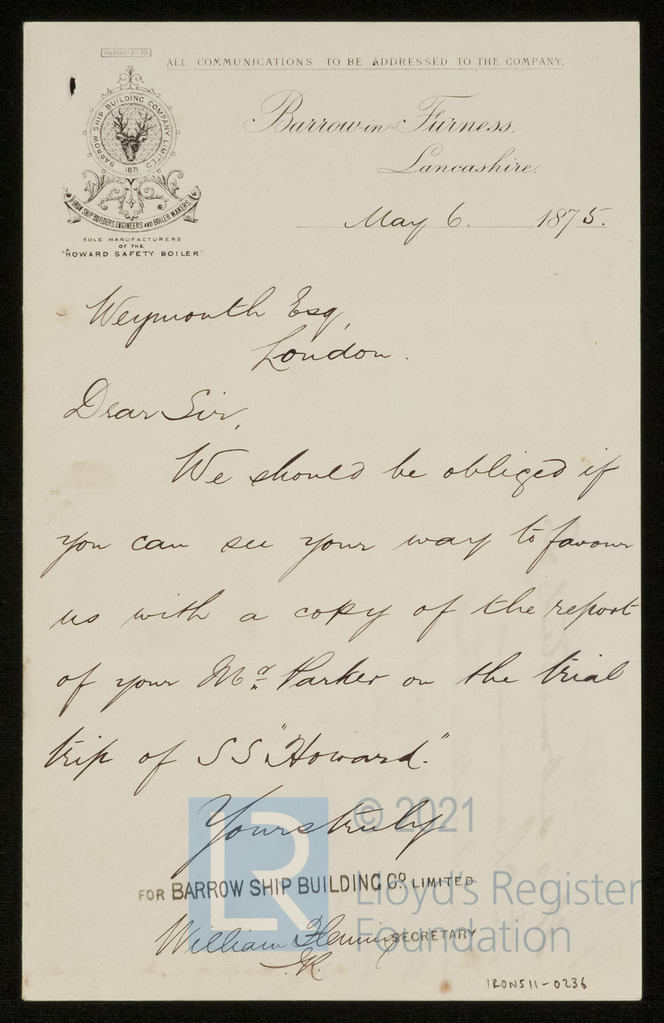 ALL COMMUNICATIONS TO BE ADDRESSED TO THE COMPANY.
BARROW SHIP BUILDING COMPANY LIMITED
1871
IRON SHIP BUILDERS, ENGINEERS AND BOILER MAKERS
SOLE MANUFACTURERS
OF THE
"HOWARD SAFETY BOILER"
Barrow in Furness.
Lancashire.
May 6. 1875.
Weymouth Esq,
London.
Dear Sir,
We should be obliged if
you can see your way to favour
us with a copy of the report
of your Mr. Parker on the trial
trip of SS "Howard."
Yours truly
FOR BARROW SHIP BUILDING Co. LIMITED
William SECRETARY
IRON511-0236
LR
© 2021
Lloyd's Register
Foundation